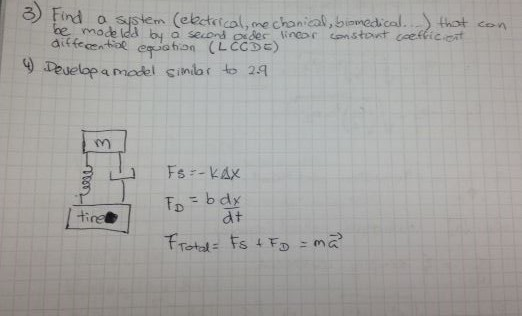 3) Find a system (electrical, mechanical, biomedical...) that can
be modeled by a second order linear constant coefficient
differential equation (LCCDE)
4) Develop a model similar to 2.9
m
Fs = -kΔx
F_D = b dx/dt
tire
F_Total = Fs + F_D = ma⃗